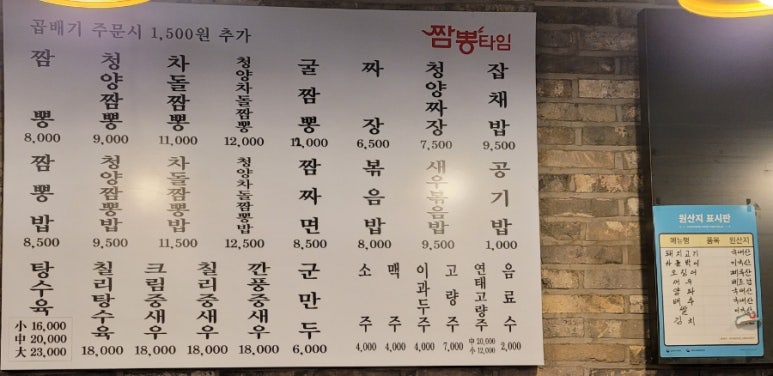 곱배기 주문시 1,500원 추가
짬뽕타임
짬뽕 8,000
청양짬뽕 9,000
차돌짬뽕 11,000
청양차돌짬뽕 12,000
굴짬뽕 11,000
짜장 6,500
청양짜장 7,500
잡채밥 9,500
짬뽕밥 8,500
청양짬뽕밥 9,500
차돌짬뽕밥 11,500
청양차돌짬뽕밥 12,500
짬짜면 8,500
볶음밥 8,000
새우볶음밥 9,500
공기밥 1,000
탕수육 小 16,000
中 20,000
大 23,000
칠리탕수육 18,000
크림중새우 18,000
칠리중새우 18,000
깐풍중새우 18,000
군만두 6,000
소주 4,000
맥주 4,000
이과두주 4,000
고량주 7,000
연태고량주 中 20,000
小 12,000
음료수 2,000
원산지 표시판
메뉴명 품목 원산지
돼지고기 국내산
오징어
새우
배추 국내산
쌀 국내산
김치